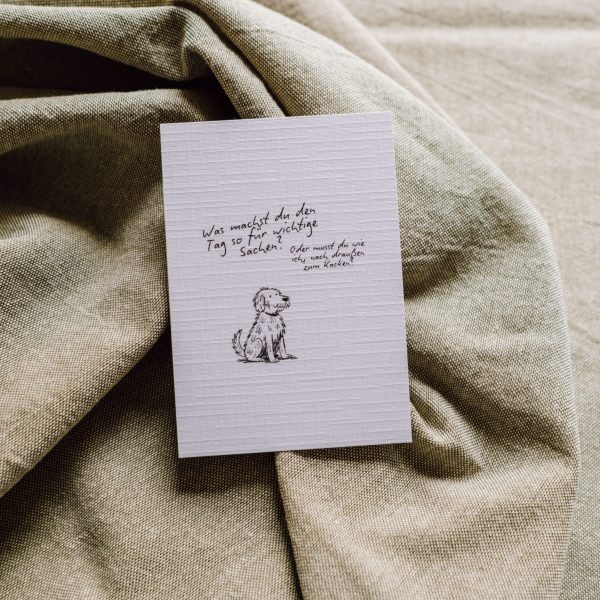 Was machst du den
Tag so für wichtige
Sachen?
Oder musst du wie
ich, nach draußen
zum Kacken?